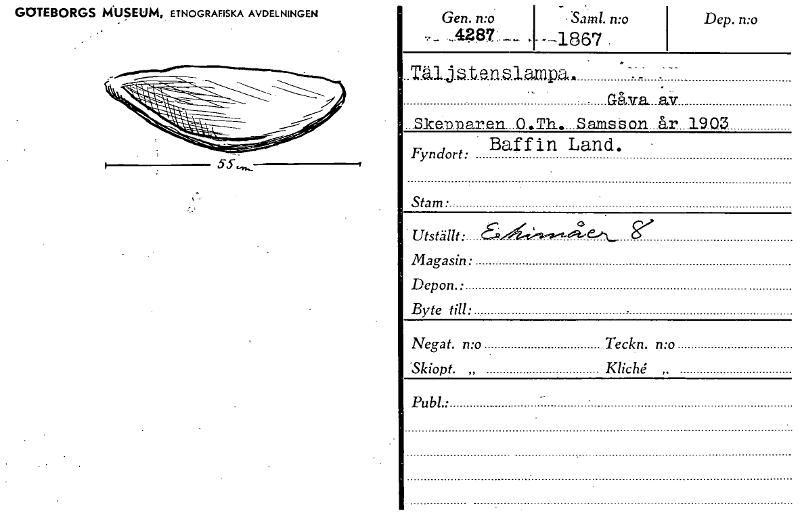 GÖTEBORGS MUSEUM, ETNOGRAFISKA AVDELNINGEN
55 cm
Gen. n:o Saml. n:o Dep. n:o
4287 1867
Täljstenslampa.
Gåva av
Skepparen O.Th. Samsson år 1903
Fyndort: Baffin Land.
Stam:
Utställt: Eskimåer 8
Magasin:
Depon.:
Byte till:
Negat. n:o Teckn. n:o
Skiopt. „ Kliché „
Publ.: